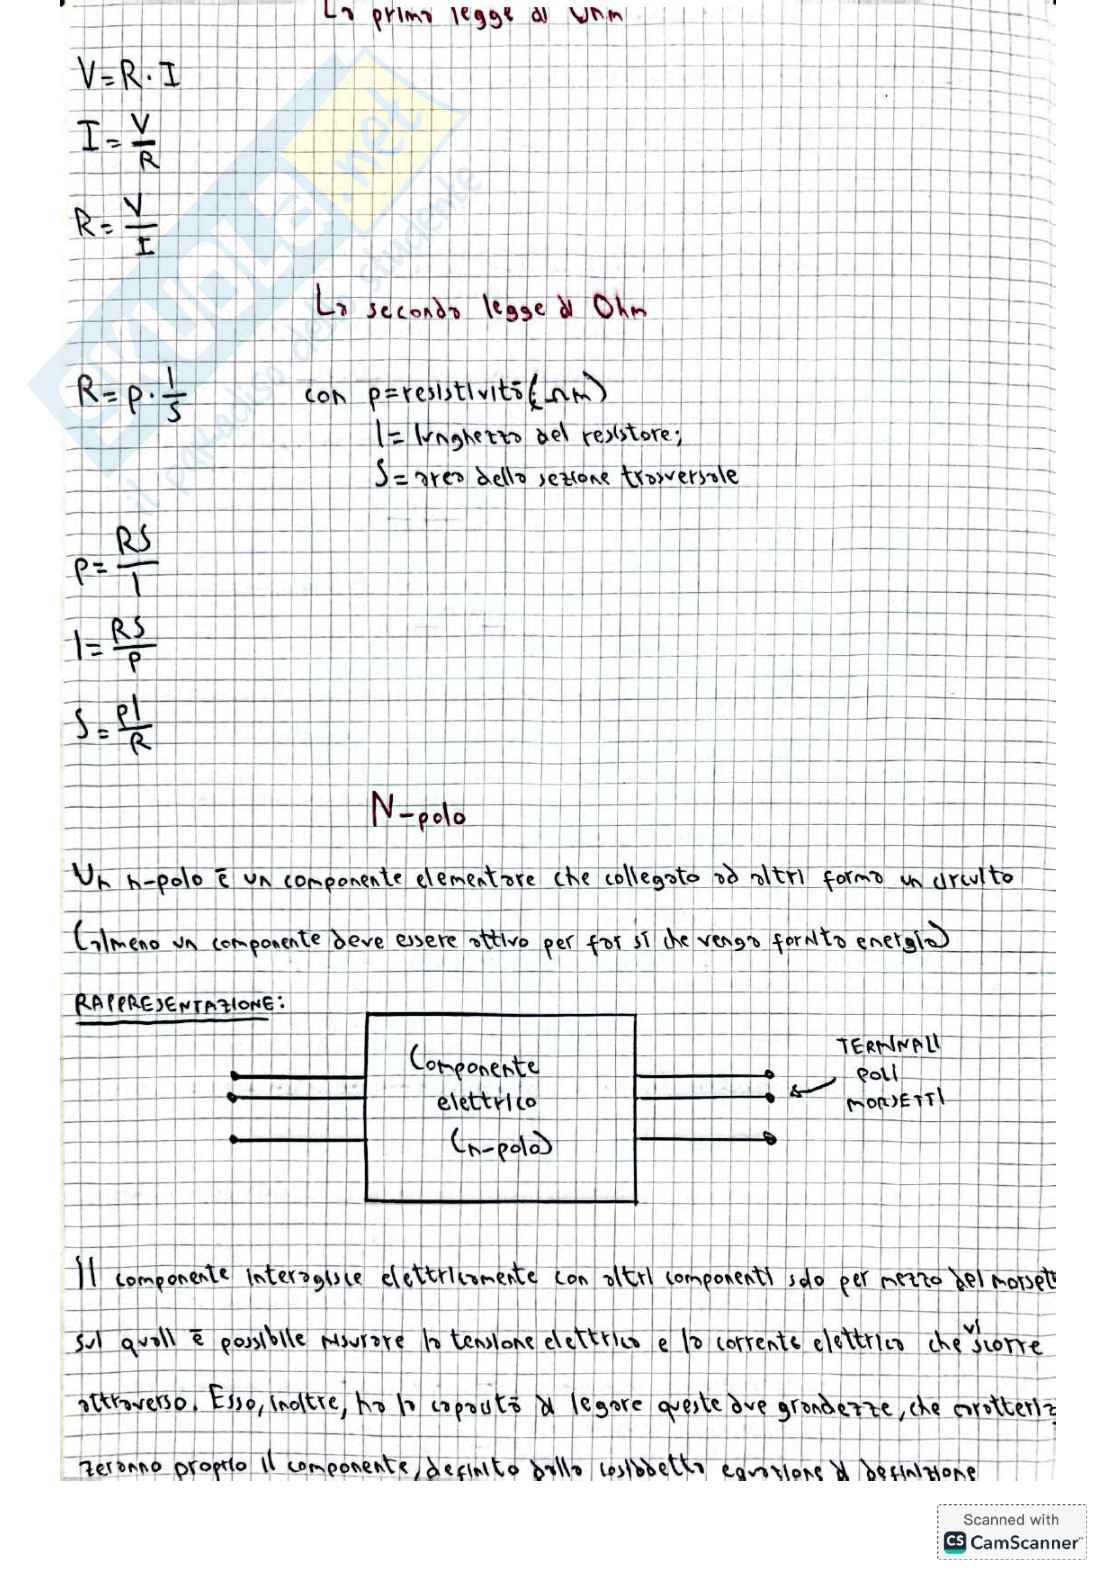 La prima legge di Ohm
V=R·I
I=V/R
R=V/I
La seconda legge di Ohm
R=ρ·l/S con ρ=resistività(Ωm)
l=lunghezza del resistore;
S=area della sezione trasversale
ρ=RS/l
l=RS/ρ
S=ρl/R
N-polo
Un n-polo è un componente elementare che collegato ad altri forma un circuito
(almeno un componente deve essere attivo per far sì che venga fornita energia)
RAPPRESENTAZIONE:
Componente
elettrico
(n-polo)
TERMINALI
POLI
MORSETTI
Il componente interagisce elettricamente con altri componenti solo per mezzo dei morset
sui quali è possibile misurare la tensione elettrica e la corrente elettrica che vi scorre
attraverso. Esso, inoltre, ha la capacità di legare queste due grandezze, che caratteriz
zeranno proprio il componente, definito dalla cosiddetta equazione di definizione
SKUOLA.net
il paradiso dello studente
Scanned with
CS CamScanner